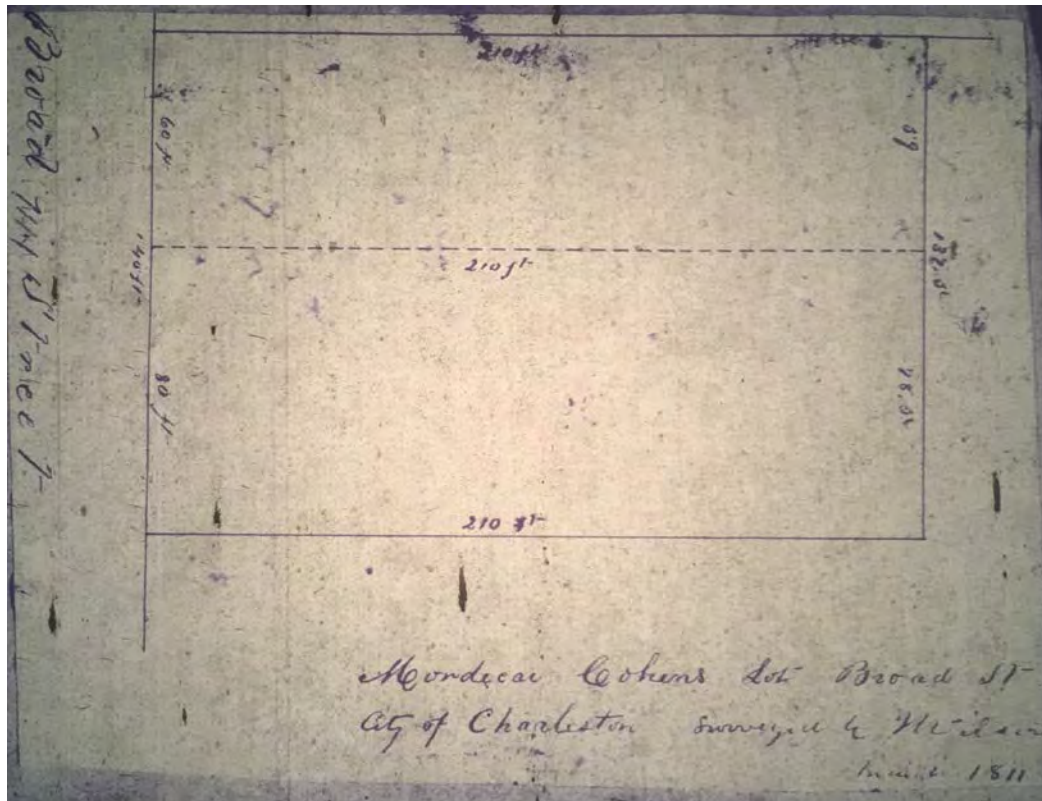 Broad Street
210 ft
60 ft
59
210 ft
140 ft
80 ft
210 ft
Mordecai Cohens Lot Broad St
City of Charleston Surveyed by
1811